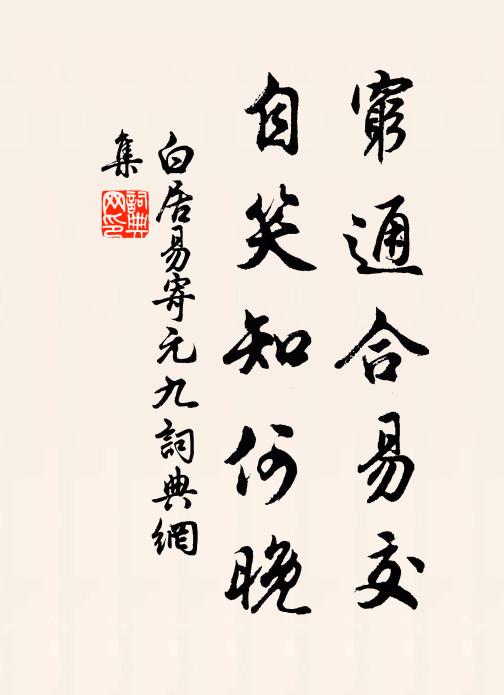 窮通合易交
自笑知何晚
白居易寄元九詞典網
集
詞典
网印